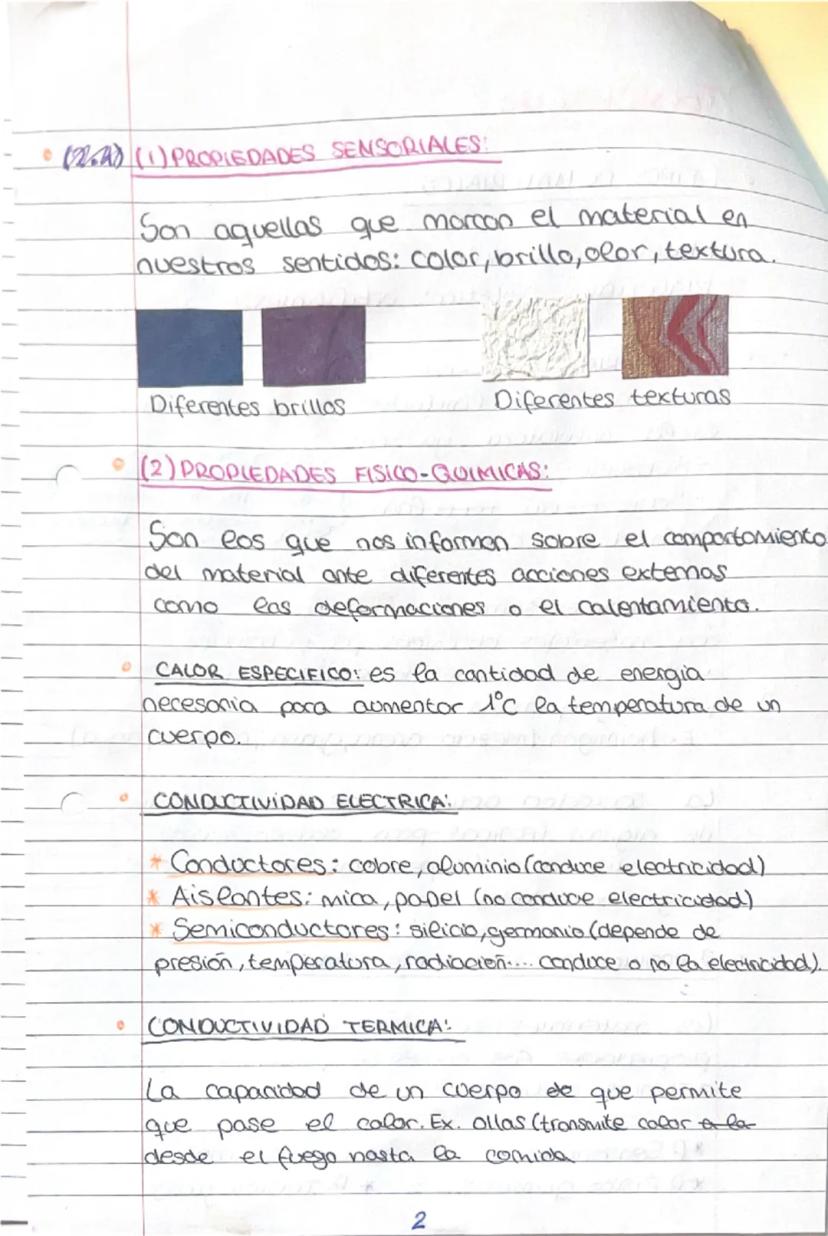 (2.A) (1) PROPIEDADES SENSORIALES:
Son aquellas que marcan el material en
nuestros sentidos: color, brillo, olor, textura.
Diferentes brillos
Diferentes texturas
(2) PROPIEDADES FISICO-QUIMICAS:
Son los que nos informan sobre el comportamiento
del material ante diferentes acciones externas
como las deformaciones o el calentamiento.
CALOR ESPECIFICO: es la cantidad de energia
necesaria para aumentar 1°C la temperatura de un
cuerpo.
CONDUCTIVIDAD ELECTRICA:
* Conductores: cobre, aluminio (conduce electricidad)
* Aislantes: mica, papel (no conduce electricidad)
* Semiconductores: silicio, germanio (depende de
presión, temperatura, radiación.... conduce o no la electricidad).
CONDUCTIVIDAD TERMICA:
La capacidad de un cuerpo de que permite
que pase el calor. Ex. ollas (transmite calor a la
desde el fuego hasta la comida
2